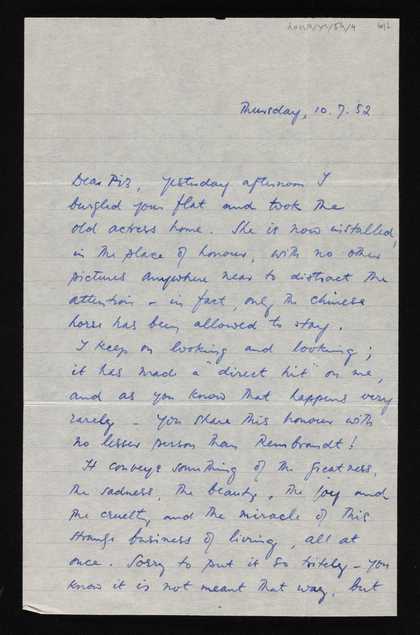 Thursday, 10.7.52
Dear Piz, yesterday afternoon I
burgled your flat and took the
old actress home. She is now installed,
in the place of honour, with no other
pictures anywhere near to distract the
attention - in fact, only the chinese
horse has been allowed to stay.
I keep on looking and looking;
it has made a "direct hit" on me,
and as you know that happens very
rarely - you share this honour with
no lesser person than Rembrandt!
It conveys something of the greatness,
the sadness, the beauty, the joy and
the cruelty and the miracle of this
strange business of living, all at
once. Sorry to put it so tritely - you
know it is not meant that way, but